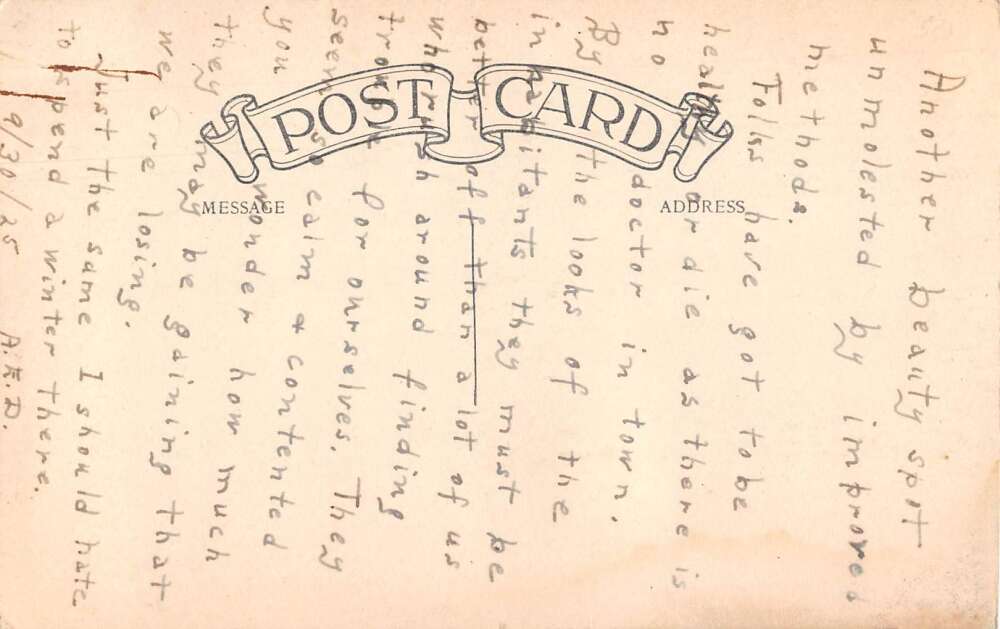 POST CARD
MESSAGE
ADDRESS
Another beauty spot
unmolested by improved
methods.
Folks have got to be
healthy or die as there is
no doctor in town.
By the looks of the
inhabitants they must be
better off than a lot of us
who rush around finding
trouble for ourselves. They
seem so calm & contented
you wonder how much
they may be gaining that
we are losing.
Just the same I should hate
to spend a winter there.
9/30/25 A.E.D.